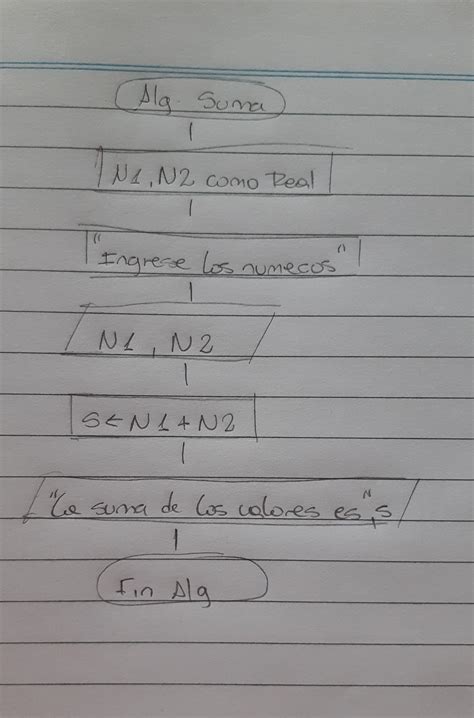 Alg. Suma
N1, N2 como Real
"Ingrese los numeros"
N1, N2
S ← N1 + N2
"La suma de los valores es", s
Fin Alg